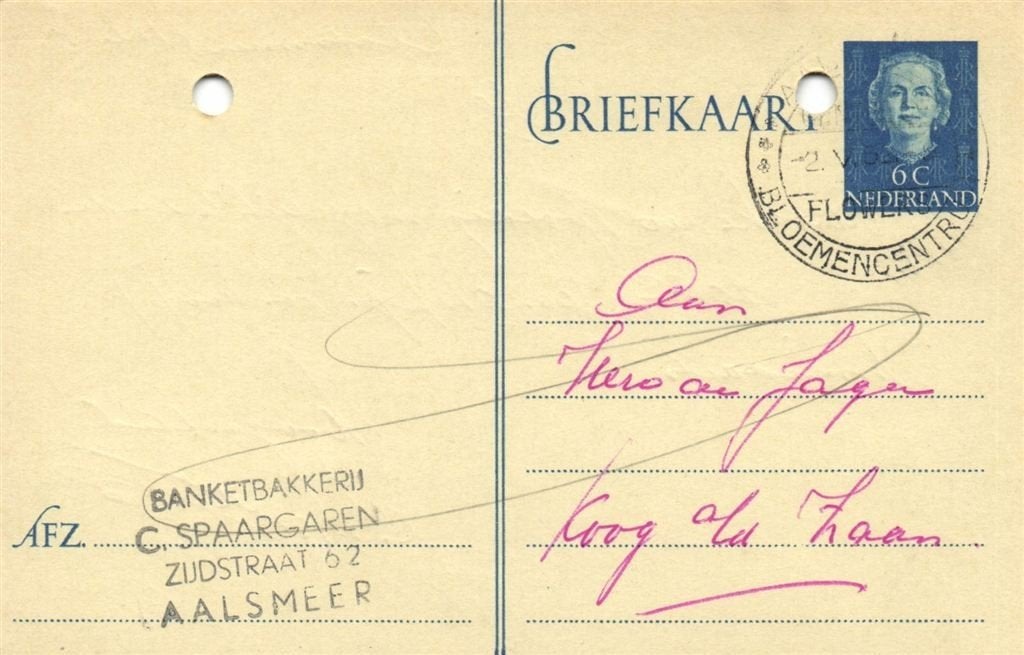 BRIEFKAART
6 C
NEDERLAND
-2. V
FLOWERS
BLOEMENCENTRU
Aan
Hero de Jager
Koog a/d Zaan.
AFZ.
BANKETBAKKERIJ
C. SPAARGAREN
ZIJDSTRAAT 62
AALSMEER